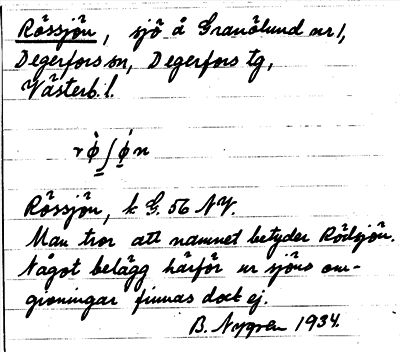 Rössjön, sjö å Granölund nr 1,
Degerfors sn, Degerfors tg,
Västerb. l.
Rössjön, k G. 56 NV.
Man tror att namnet betyder Rödsjön.
Något belägg härför ur sjöns om-
givningar finnas dock ej.
B. Nygren 1934.